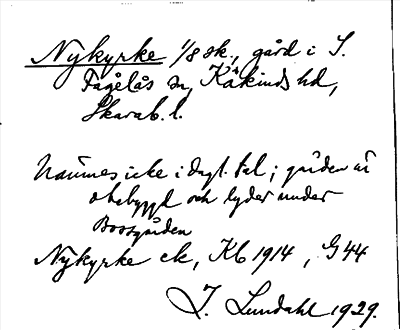 Nykyrke 1/8 sk., gård i S.
Fågelås sn, Kåkinds hd,
Skarab. l.
Nämnes icke i dagl. tal; gården är
obebyggd och lyder under
Borrgården
Nykyrke ek, Kb 1914, G44
J. Lundahl 1929.